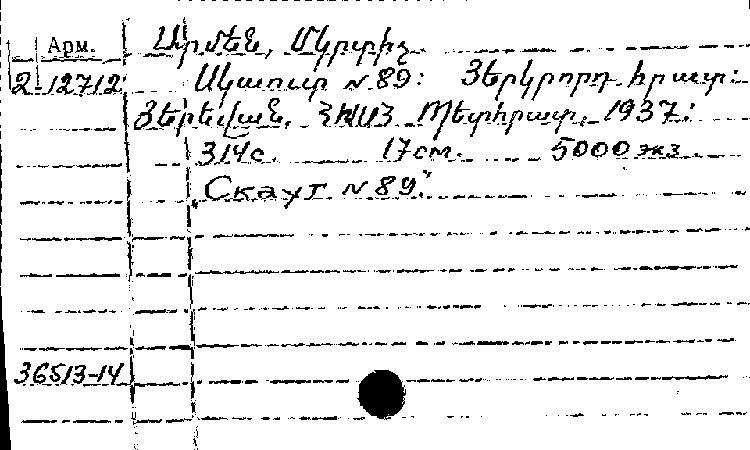 Арм. Արմեն, Մկրտիչ
2-12712 Սկաուտ N 89: Յերկրորդ հրատ:
Յերեվան, ՀԽՍՀ Պետհրատ, 1937:
314 с. 17 см. 5000 экз.
„Скаут N 89."
36513-14